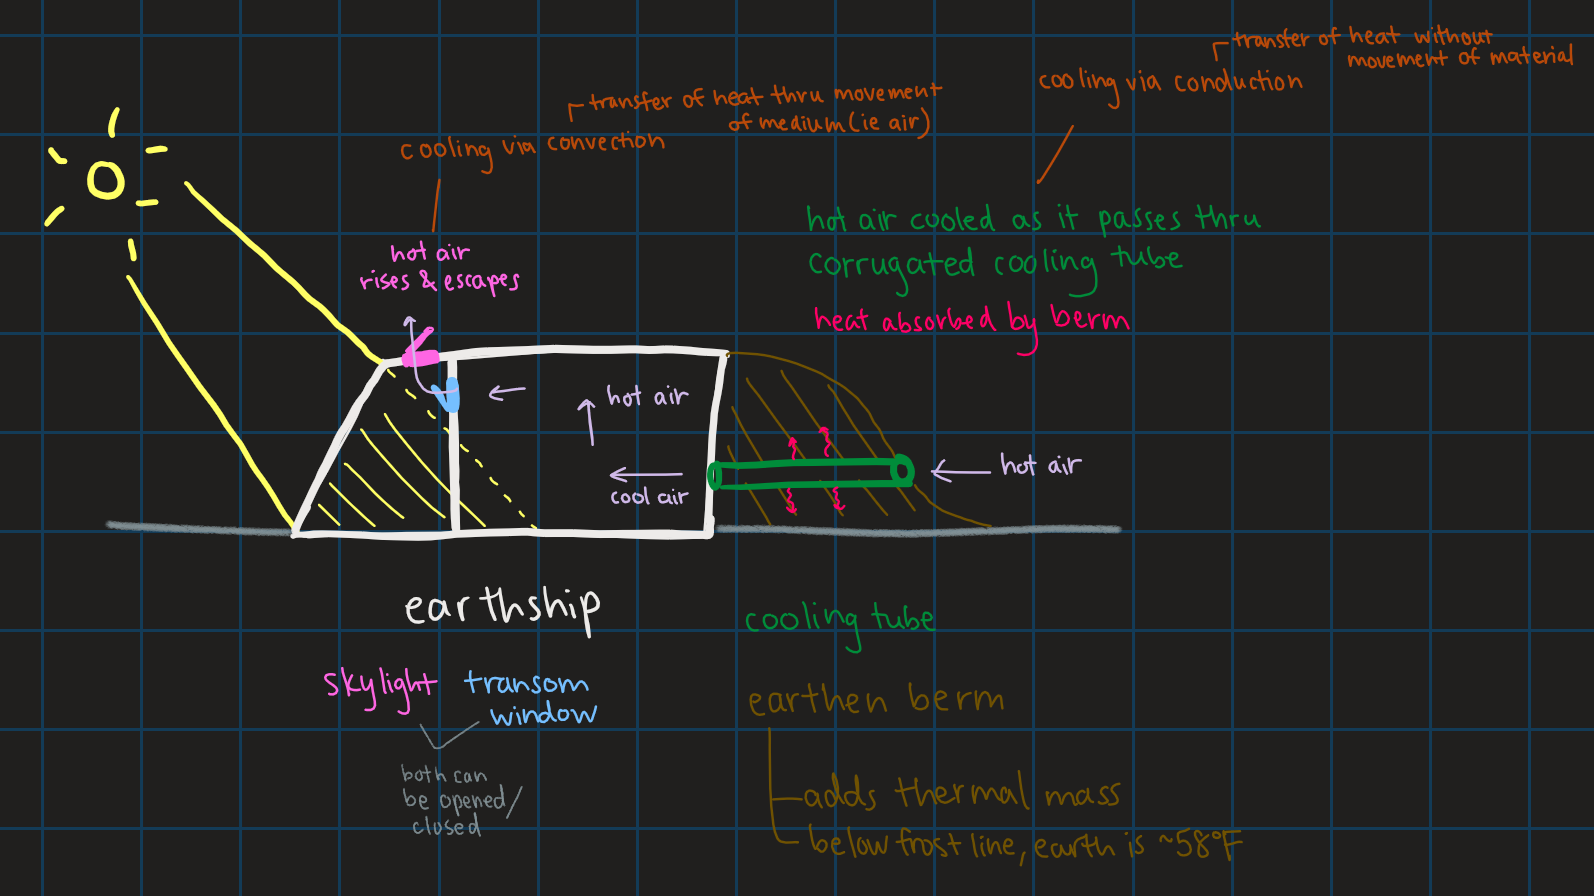 transfer of heat without
movement of material
cooling via conduction
transfer of heat thru movement
of medium (ie air)
cooling via convection
hot air
rises & escapes
hot air cooled as it passes thru
corrugated cooling tube
heat absorbed by berm
hot air
cool air
hot air
earthship
cooling tube
skylight
transom
window
both can
be opened/
closed
earthen berm
adds thermal mass
below frost line, earth is ~58°F